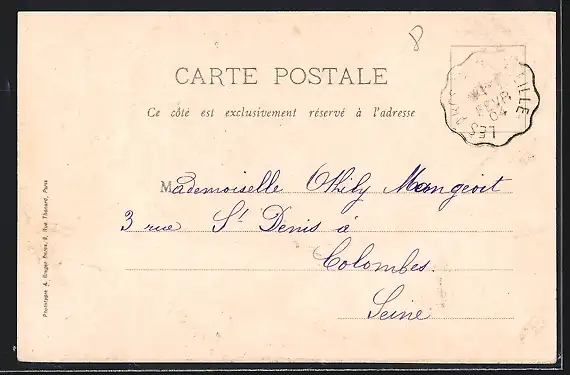 8
CARTE POSTALE
Ce côté est exclusivement réservé à l'adresse
LILLE
FEVR
04
LES
Mademoiselle Othily Mangeot
3 rue St Denis à
Colombes.
Seine
Phototypie A. Breger Frères, 9, Rue Thénard, Paris